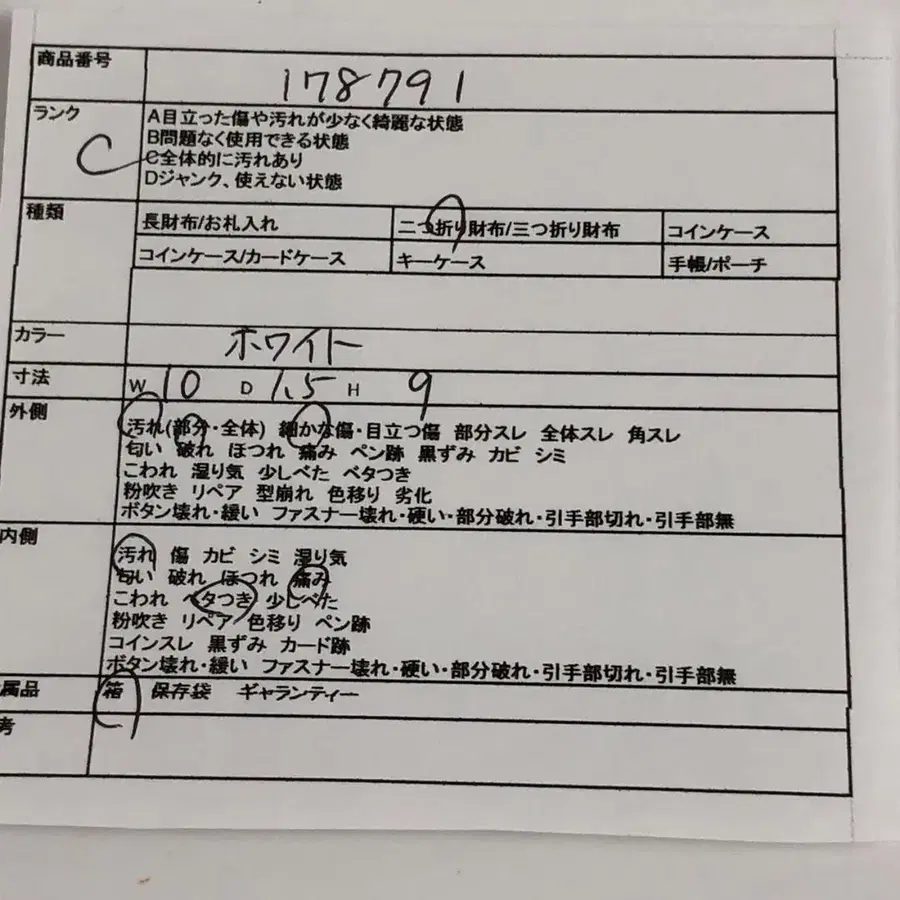 商品番号
178791
ランク
C
A目立った傷や汚れが少なく綺麗な状態
B問題なく使用できる状態
C全体的に汚れあり
Dジャンク、使えない状態
種類
長財布/お札入れ 二つ折り財布/三つ折り財布 コインケース
コインケース/カードケース キーケース 手帳/ポーチ
カラー
ホワイト
寸法
W 10 D 1.5 H 9
外側
汚れ(部分・全体) 細かな傷・目立つ傷 部分スレ 全体スレ 角スレ
匂い 破れ ほつれ 痛み ペン跡 黒ずみ カビ シミ
こわれ 湿り気 少しべた ベタつき
粉吹き リペア 型崩れ 色移り 劣化
ボタン壊れ・緩い ファスナー壊れ・硬い・部分破れ・引手部切れ・引手部無
内側
汚れ 傷 カビ シミ 湿り気
匂い 破れ ほつれ 痛み
こわれ ベタつき 少しべた
粉吹き リペア 色移り ペン跡
コインスレ 黒ずみ カード跡
ボタン壊れ・緩い ファスナー壊れ・硬い・部分破れ・引手部切れ・引手部無
属品
箱 保存袋 ギャランティー
考